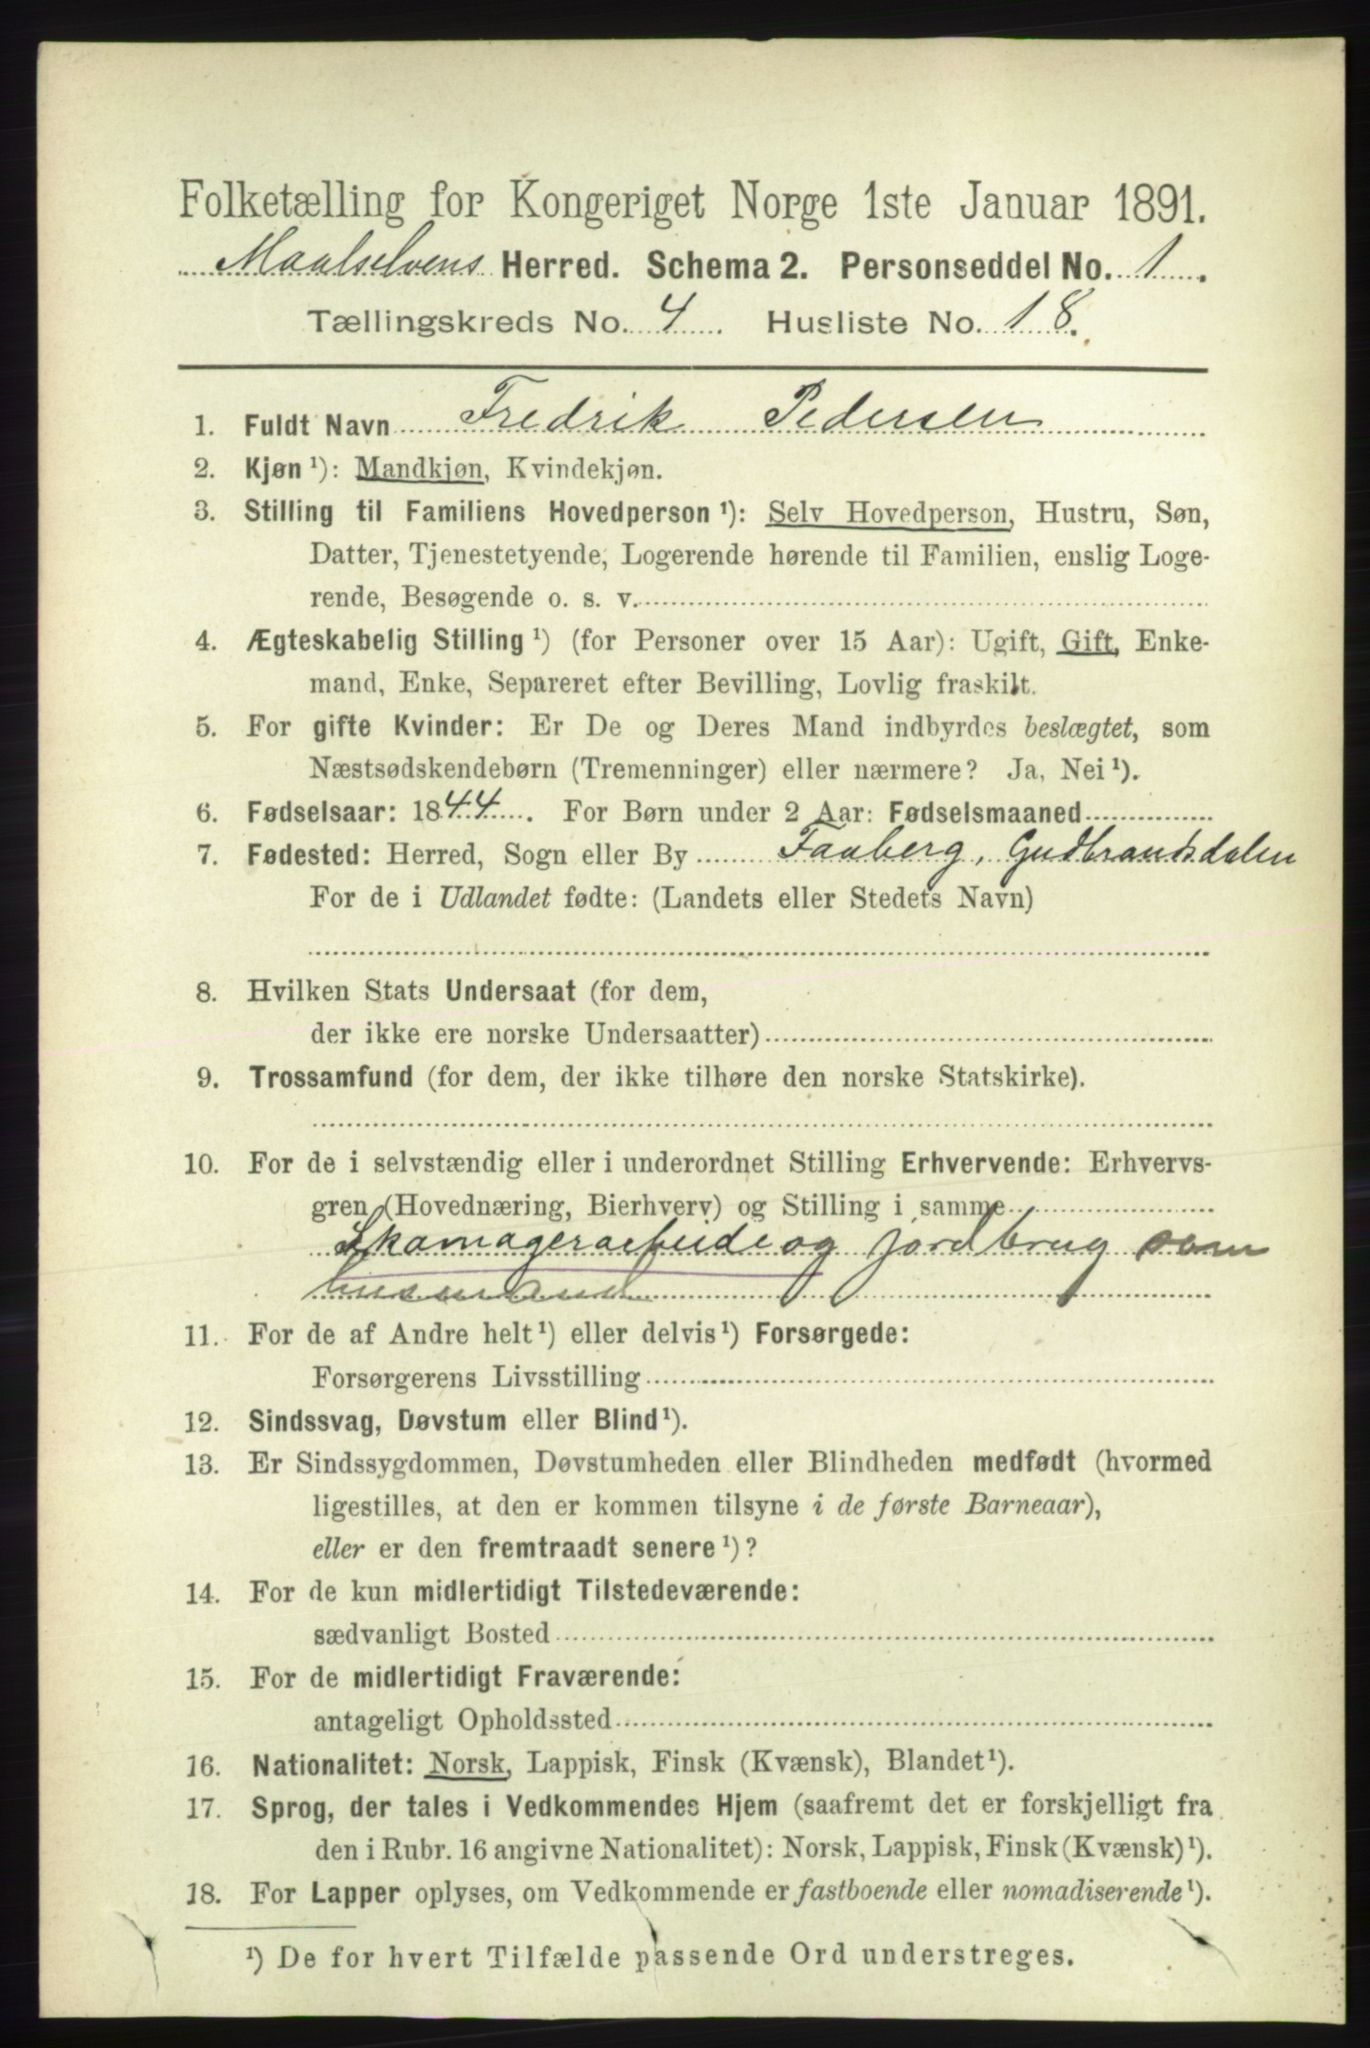 Folketælling for Kongeriget Norge 1ste Januar 1891.
Maalselvens Herred. Schema 2. Personseddel No. 1.
Tællingskreds No. 4. Husliste No. 18.
1. Fuldt Navn Fredrik Pedersen
2. Kjøn¹): Mandkjøn, Kvindekjøn.
3. Stilling til Familiens Hovedperson¹): Selv Hovedperson, Hustru, Søn,
Datter, Tjenestetyende, Logerende hørende til Familien, enslig Loge-
rende, Besøgende o. s. v.
4. Ægteskabelig Stilling¹) (for Personer over 15 Aar): Ugift, Gift, Enke-
mand, Enke, Separeret efter Bevilling, Lovlig fraskilt.
5. For gifte Kvinder: Er De og Deres Mand indbyrdes beslægtet, som
Næstsødskendebørn (Tremenninger) eller nærmere? Ja, Nei¹).
6. Fødselsaar: 1844. For Børn under 2 Aar: Fødselsmaaned
7. Fødested: Herred, Sogn eller By Faaberg, Gudbrandsdalen
For de i Udlandet fødte: (Landets eller Stedets Navn)
8. Hvilken Stats Undersaat (for dem,
der ikke ere norske Undersaatter)
9. Trossamfund (for dem, der ikke tilhøre den norske Statskirke).
10. For de i selvstændig eller i underordnet Stilling Erhvervende: Erhvervs-
gren (Hovednæring, Bierhverv) og Stilling i samme
Skomagerarbeide og jordbrug som
husmand
11. For de af Andre helt¹) eller delvis¹) Forsørgede:
Forsørgerens Livsstilling
12. Sindssvag, Døvstum eller Blind¹).
13. Er Sindssygdommen, Døvstumheden eller Blindheden medfødt (hvormed
ligestilles, at den er kommen tilsyne i de første Barneaar),
eller er den fremtraadt senere¹)?
14. For de kun midlertidigt Tilstedeværende:
sædvanligt Bosted
15. For de midlertidigt Fraværende:
antageligt Opholdssted
16. Nationalitet: Norsk, Lappisk, Finsk (Kvænsk), Blandet¹).
17. Sprog, der tales i Vedkommendes Hjem (saafremt det er forskjelligt fra
den i Rubr. 16 angivne Nationalitet): Norsk, Lappisk, Finsk (Kvænsk)¹).
18. For Lapper oplyses, om Vedkommende er fastboende eller nomadiserende¹).
¹) De for hvert Tilfælde passende Ord understreges.